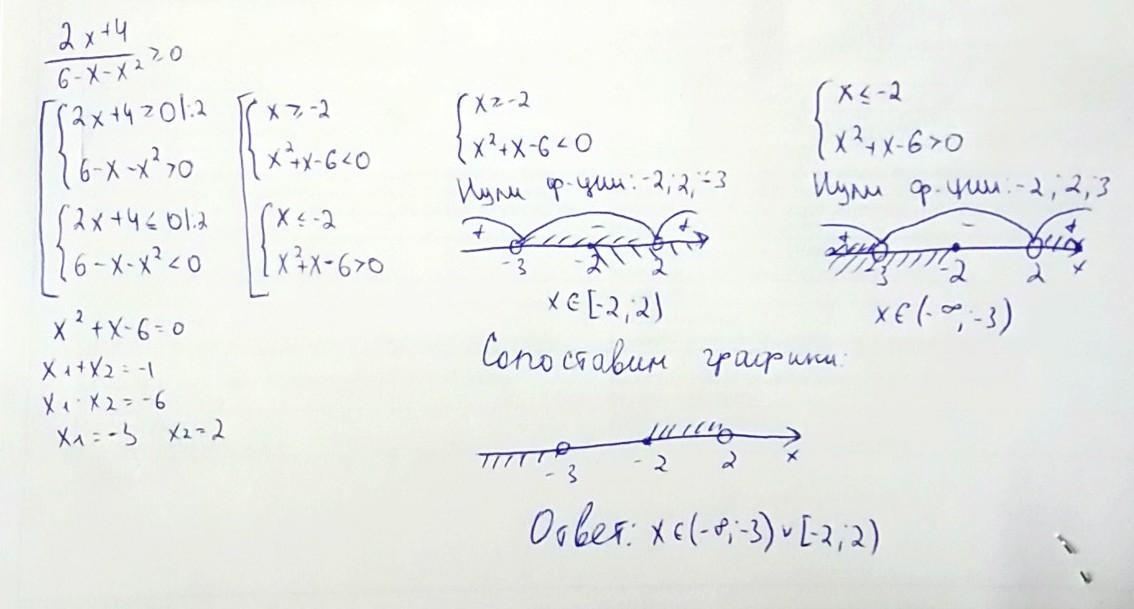 (2x+4)/(6-x-x²) ≥ 0
[ { 2x+4 ≥ 0 |:2
6-x-x² > 0
{ 2x+4 ≤ 0 |:2
6-x-x² < 0
[ { x ≥ -2
x²+x-6 < 0
{ x ≤ -2
x²+x-6 > 0
x²+x-6=0
x1+x2=-1
x1·x2=-6
x1=-3 x2=2
{ x ≥ -2
x²+x-6 < 0
Нули ф-ции: -2; 2; -3
+ - +
-3 -2 2
x∈[-2;2)
{ x ≤ -2
x²+x-6 > 0
Нули ф-ции: -2; 2; 3
+ - +
-3 -2 2 x
x∈(-∞;-3)
Сопоставим графики:
-3 -2 2 x
Ответ: x∈(-∞;-3)∪[-2;2)